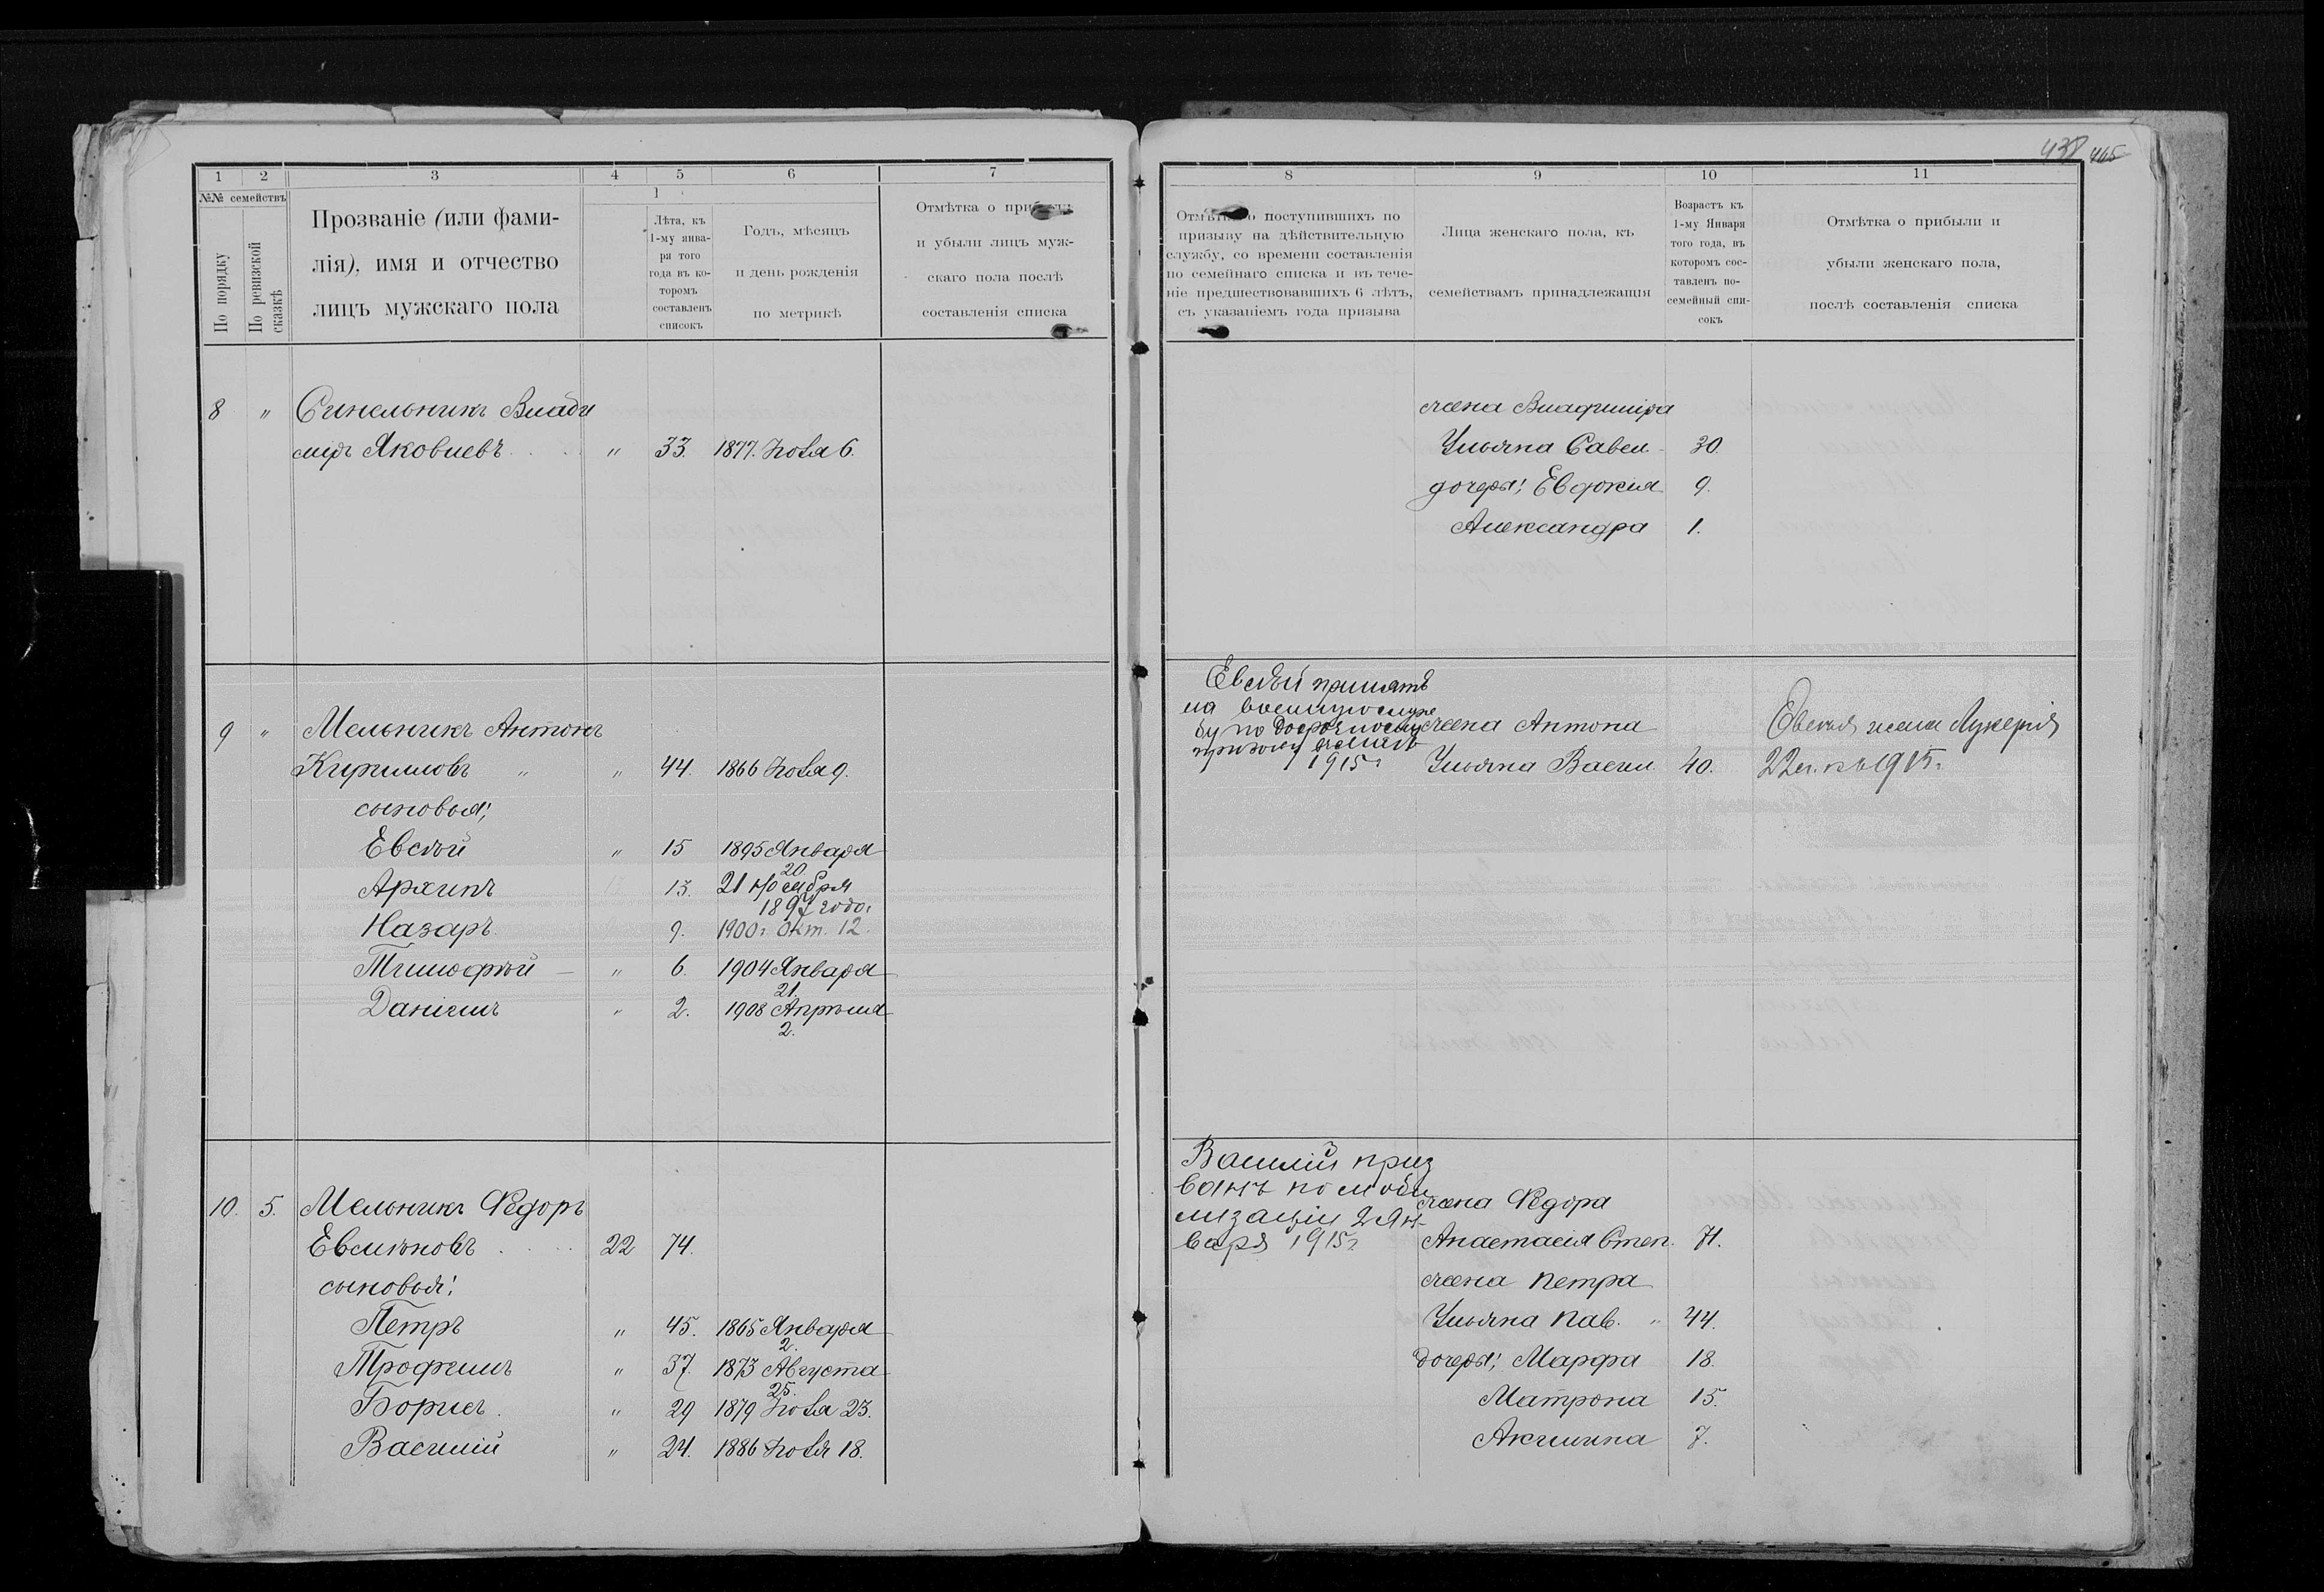 438 465
1 2 3 4 5 6 7
№№ семействъ
По порядку
По ревизской сказкѣ
Прозваніе (или фами-
лія), имя и отчество
лицъ мужскаго пола
1
Лѣта, къ
1-му янва-
ря того
года въ ко-
торомъ
составленъ
списокъ
Годъ, мѣсяцъ
и день рожденія
по метрикѣ
Отмѣтка о
и убыли лицъ муж-
скаго пола послѣ
составленія списка
8 " Синельникъ Влади
миръ Яковлевъ " 33. 1877. Іюля 6.
9 " Мельникъ Антонъ
Кирилловъ " " 44. 1866 Іюля 9.
сыновья;
Евсѣй " 15 1895 Января
20
Архипъ 13. 21 Ноября
1897 года.
Назаръ 9. 1900г. Окт. 12.
Тимофѣй " 6. 1904 Января
21.
Даніилъ " 2. 1908 Апрѣля
2.
10. 5. Мельникъ Ѳедоръ
Евсѣновъ 22 74.
сыновья:
Петръ " 45. 1865 Января
2.
Трофимъ " 37. 1873 Августа
25.
Борисъ " 29 1879 Іюля 23.
Василій " 24. 1886 Іюля 18.
8 9 10 11
о поступившихъ по
призыву на дѣйствительную
службу, со времени составленія
по семейнаго списка и въ тече-
ніе предшествовавшихъ 6 лѣтъ,
съ указаніемъ года призыва
Лица женскаго пола, къ
семействамъ принадлежащія
Возрастъ къ
1-му Января
того года, въ
которомъ сос-
тавленъ по-
семейный спи-
сокъ
Отмѣтка о прибыли и
убыли женскаго пола,
послѣ составленія списка
жена Владиміра
Ульяна Савел. 30.
дочери: Евдокія 9.
Александра 1.
Евсѣй принятъ
на военную служ
бу по досрочному
призыву
1915г
жена Антона
Ульяна Васил. 40.
Евсѣя жена Лукерія
22 л. къ 1915г.
Василій приз
ванъ по моби
лизаціи 2 Ян-
варя 1915г
жена Ѳедора
Анастасія Степ. 71.
жена Петра
Ульяна Пав. " 44.
дочери; Марфа 18.
Матрона 15.
Акилина 7.